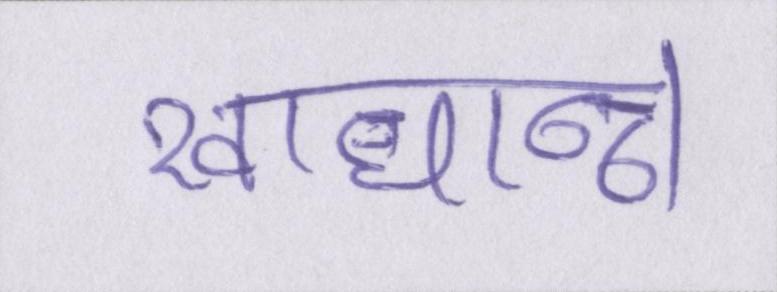 खाद्यान्न